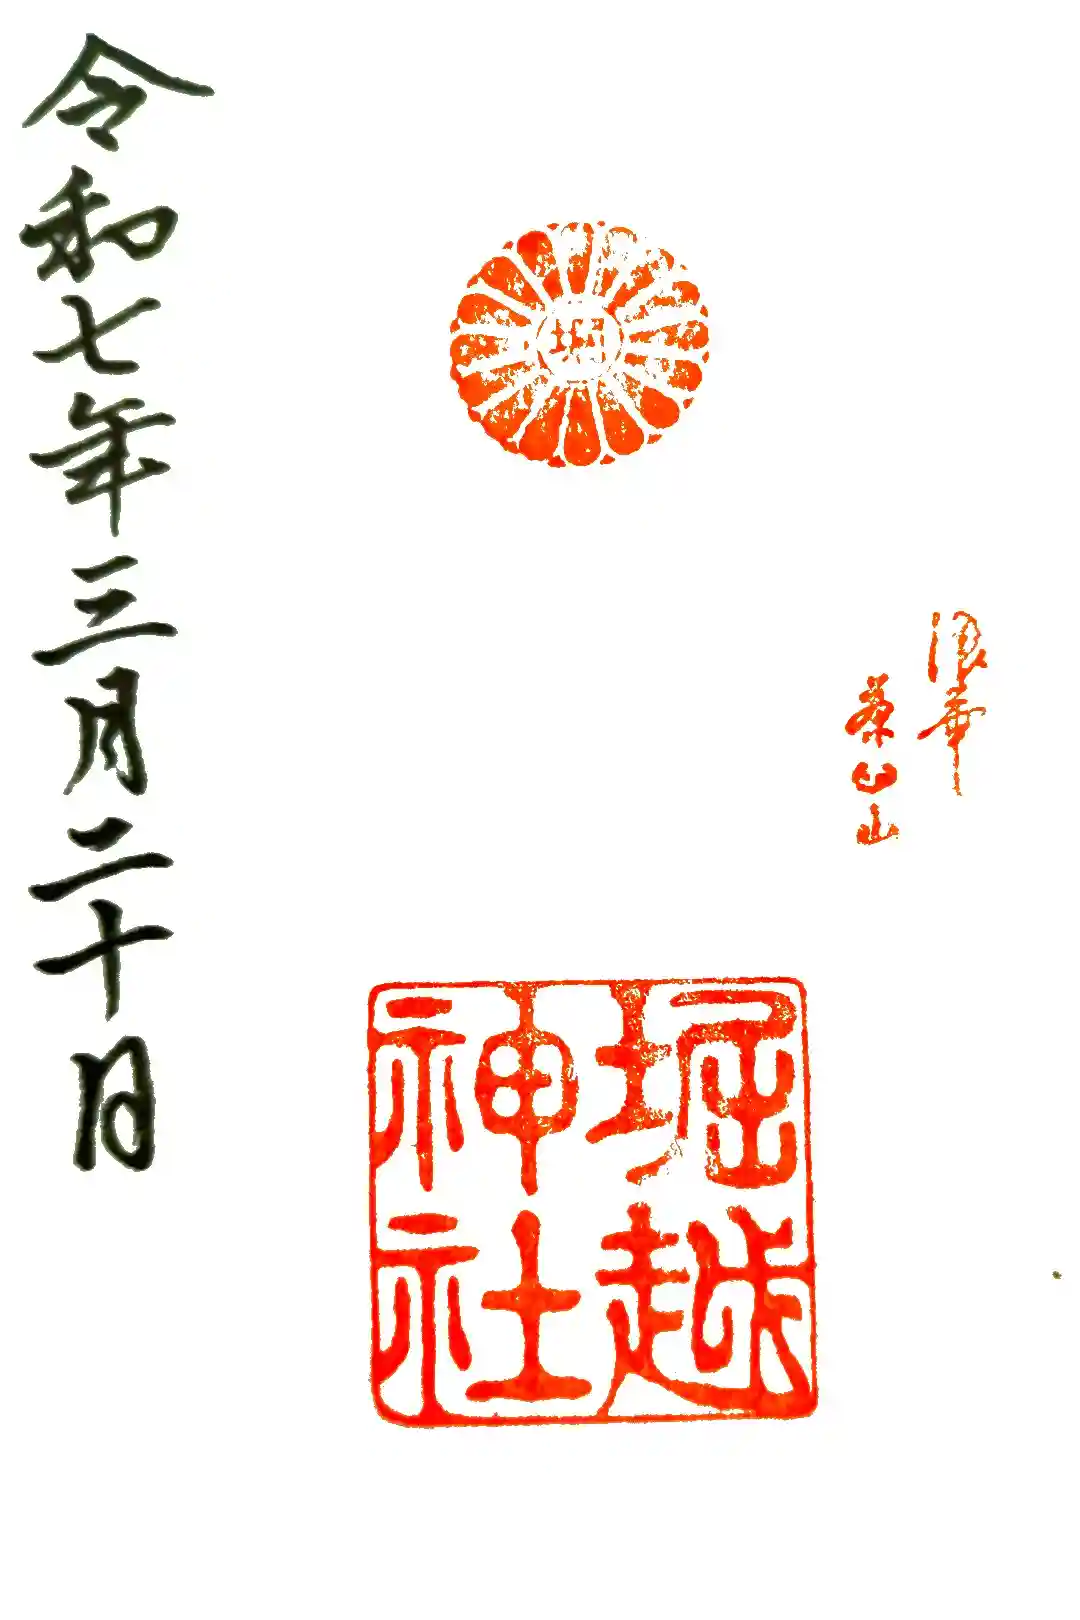 浪華
茶臼山
堀
堀越
神社
令和七年三月二十日